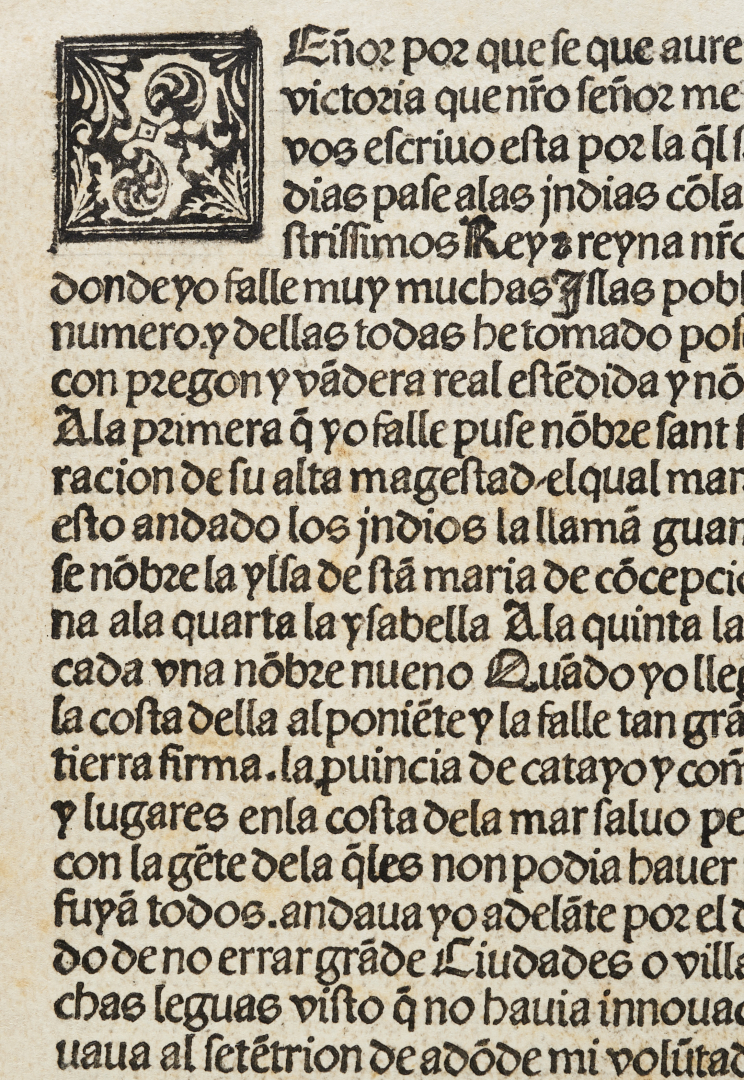 SEñor por que se que aure
victoria que nr̃o señor me
vos escriuo esta por la q̃l
dias pase alas jndias cõla
strissimos Rey ⁊ reyna nr̃o
donde yo falle muy muchas Islas pobl
numero. y dellas todas he tomado pos
con pregon y vãdera real estẽdida y nõ
Ala primera q̃ yo falle puse nõbre sant
racion de su alta magestad el qual mar
esto andado los jndios la llamã guan
se nõbre la ylsa de stã maria de cõcepcio
na ala quarta la ysabella Ala quinta la
cada vna nõbre nueno Quãdo yo lleg
la costa della al poniẽte y la falle tan grã
tierra firma. la ꝓuincia de catayo y com̃
y lugares enla costa dela mar saluo pe
con la gẽte dela q̃les non podia hauer
fuyã todos. andaua yo adelãte por el
do de no errar grãde Ciudades o villa
chas leguas visto q̃ no hauia innouac
uaua al setẽtrion de adõde mi volũtad